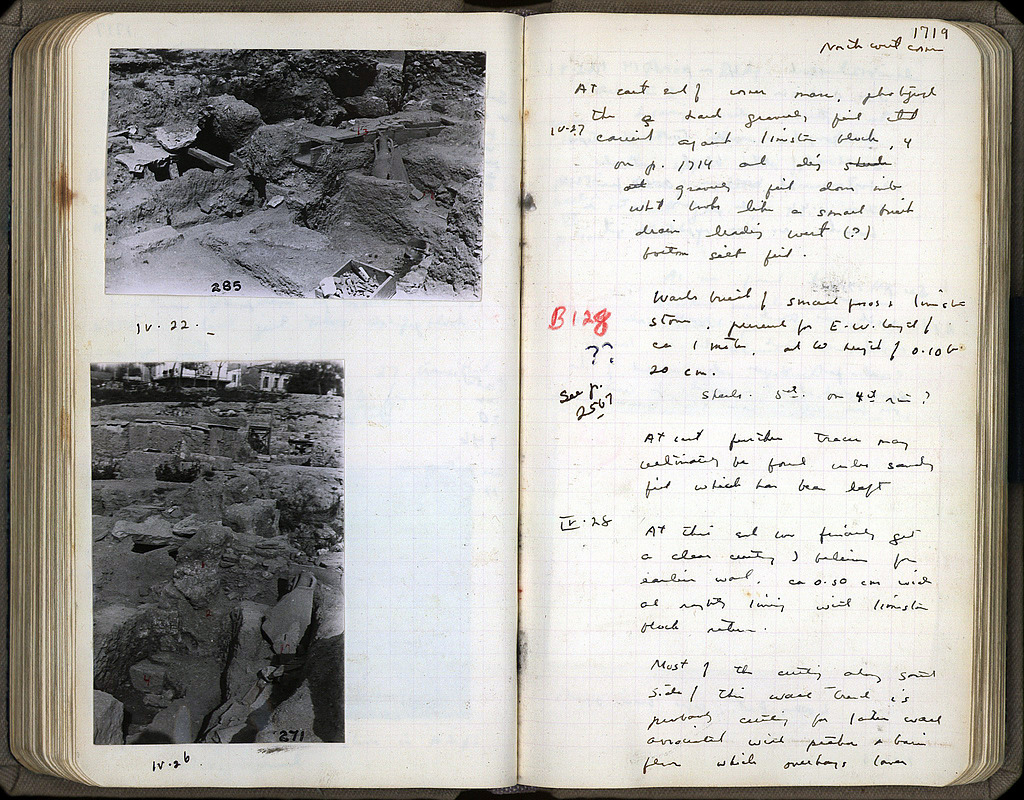 285
IV. 22.
271
IV. 26.
1719
North west corner
At east end of
the hard gravelly fill
IV-27
against limestone block, 4
on p. 1714 and dig
gravelly fill down into
what looks like a small
drain leading west (?)
bottom silt fill.
Walls built of small limestone
B128
stone, preserved for E-W. length of
??
ca 1 meter, and W height of 0.10 to
20 cm.
See p.
2567
Sherds. 5th. or 4th ?
At east further traces may
ultimately be found under sandy
fill which has been left
IV. 28
At this end we finally get
a clear cutting I believe for
earlier wall. ca 0.50 cm wide
and lining with limestone
block return.
Most of the cutting along south
side of this wall trench is
probably cutting for later wall
associated with
floor which overlays lower